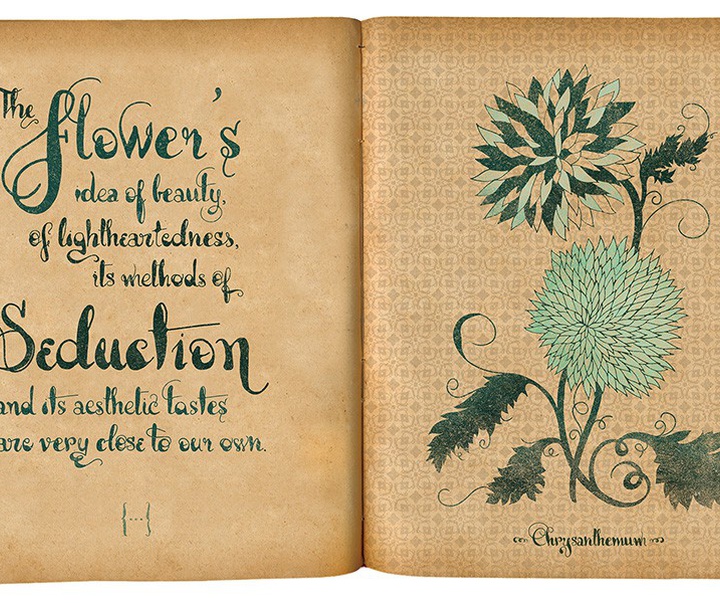 The
Flower's
idea of beauty,
of lightheartedness,
its methods of
Seduction
and its aesthetic tastes
are very close to our own.
{...}
Chrysanthemum